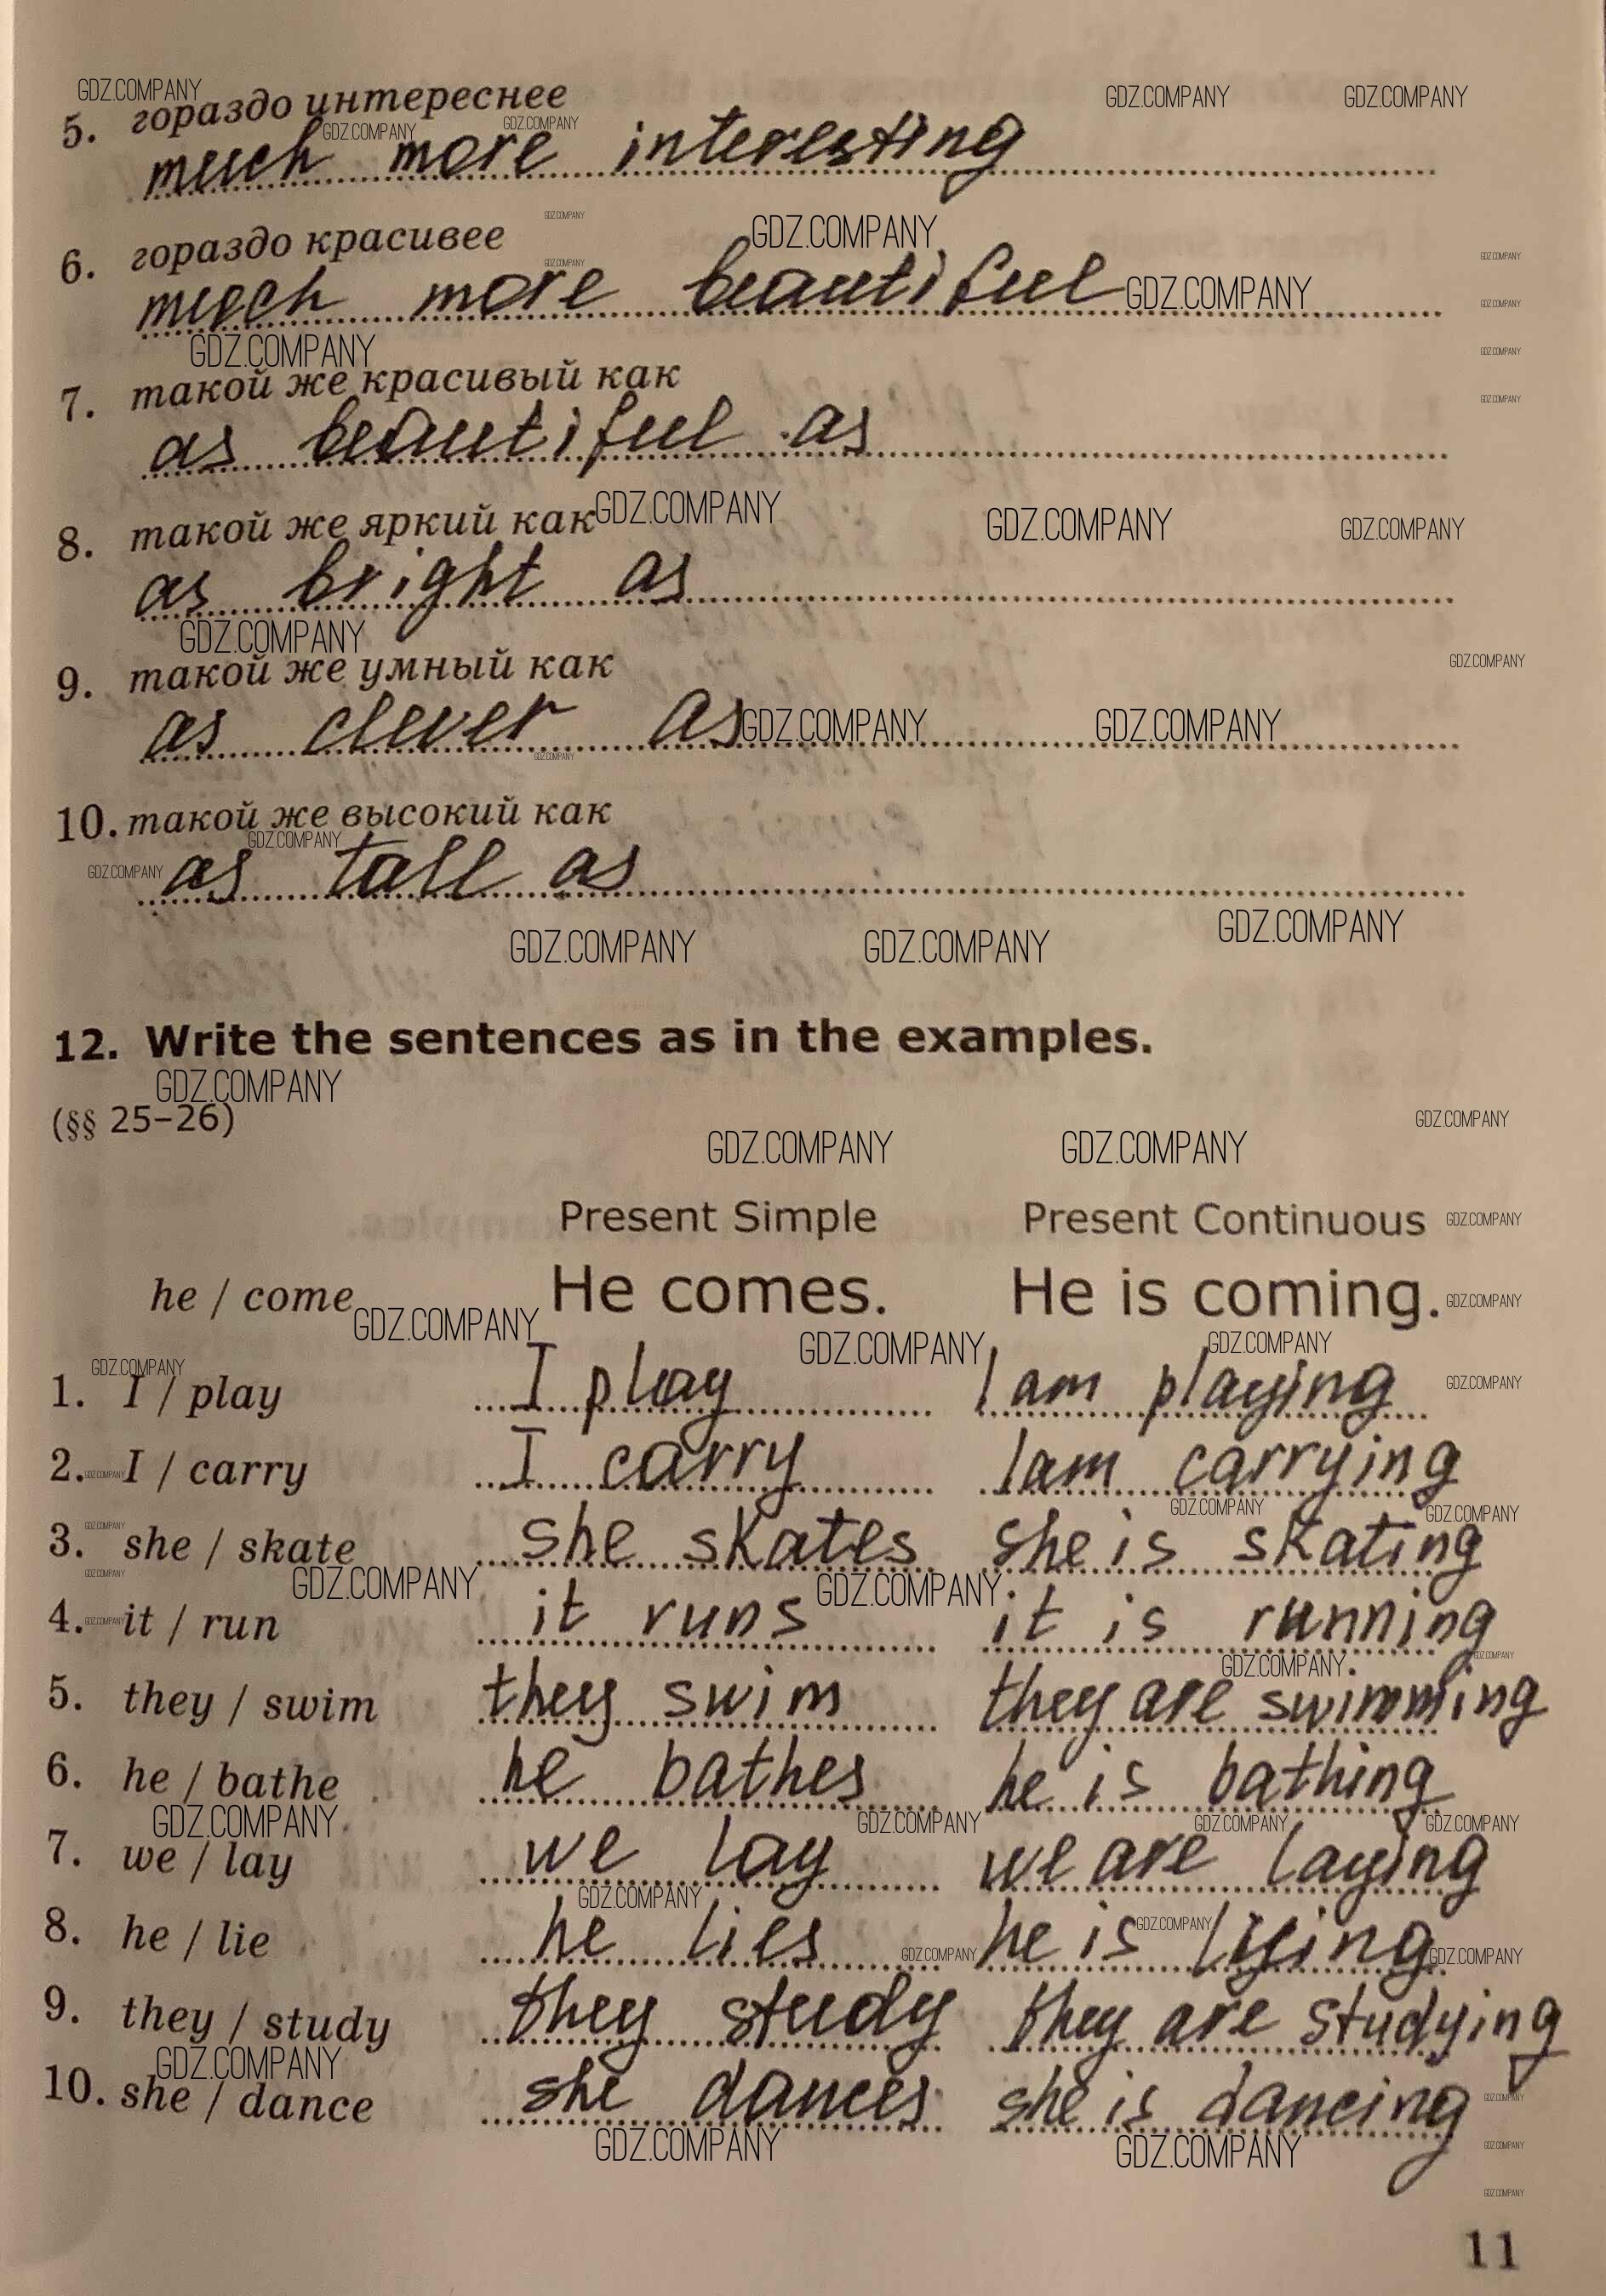 5. гораздо интереснее
much more interesting
6. гораздо красивее
much more beautiful
7. такой же красивый как
as beautiful as
8. такой же яркий как
as bright as
9. такой же умный как
as clever as
10. такой же высокий как
as tall as
12. Write the sentences as in the examples.
(§§ 25–26)
Present Simple Present Continuous
he / come He comes. He is coming.
1. I / play I play I am playing
2. I / carry I carry I am carrying
3. she / skate she skates she is skating
4. it / run it runs it is running
5. they / swim they swim they are swimming
6. he / bathe he bathes he is bathing
7. we / lay we lay we are laying
8. he / lie he lies he is lying
9. they / study they study they are studying
10. she / dance she dances she is dancing
11
GDZ.COMPANY